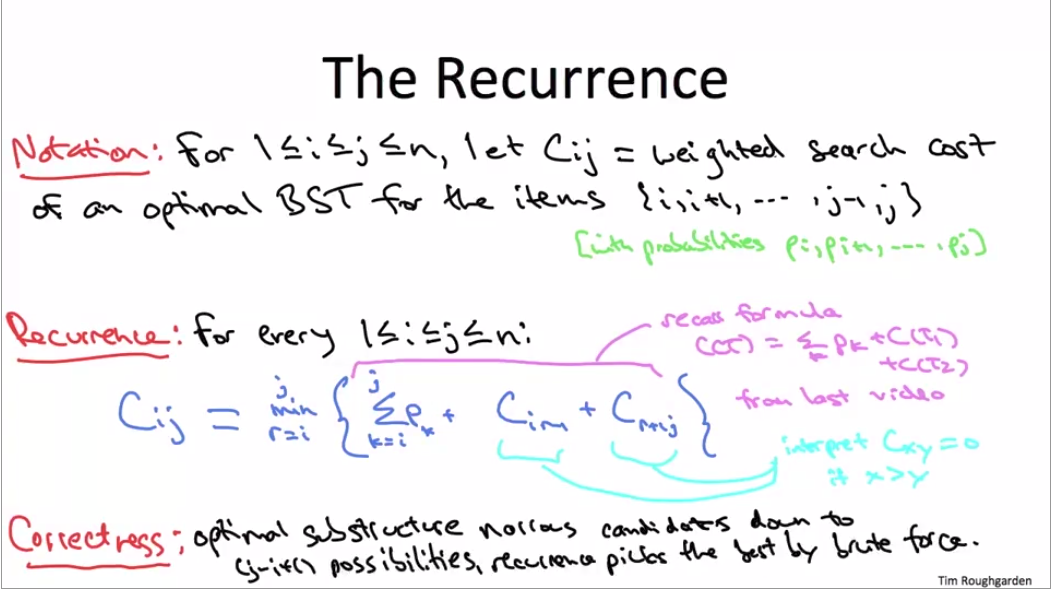 The Recurrence
Notation: For 1≤i≤j≤n, let Cij = weighted search cost
of an optimal BST for the items {i,i+1, --- ,j-1,j}
[with probabilities pi,pi+1, ---- ,pj]
Recurrence: For every 1≤i≤j≤n:
recall formula
C(T) = Σ_k p_k + C(T1)
+C(T2)
from last video
Cij = min_{r=i}^{j} { Σ_{k=i}^{j} p_k + C_{i,r-1} + C_{r+1,j} }
interpret Cxy = 0
if x>y
Correctness: optimal substructure narrows candidates down to
(j-i+1) possibilities, recurrence picks the best by brute force.
Tim Roughgarden